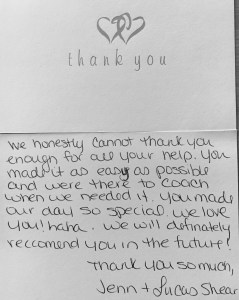 thank you
We honestly cannot thank you
enough for all your help. You
made it as easy as possible
and were there to coach
when we needed it. You made
our day so special. We love
you! haha. We will definately
reccomend you in the future!
Thank you so much,
Jenn + Lucas Shear